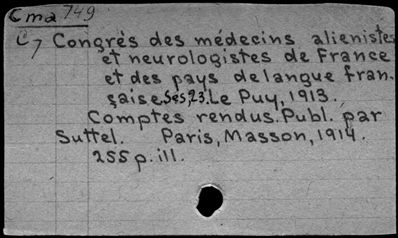 Cma 749
C7 Congrès des médecins alienistes
et neurologistes de France
et des pays de langue fran-
çaise. Ses, 23. Le Puy, 1913.
Comptes rendus. Publ. par
Suttel. Paris, Masson, 1914.
255 p. ill.